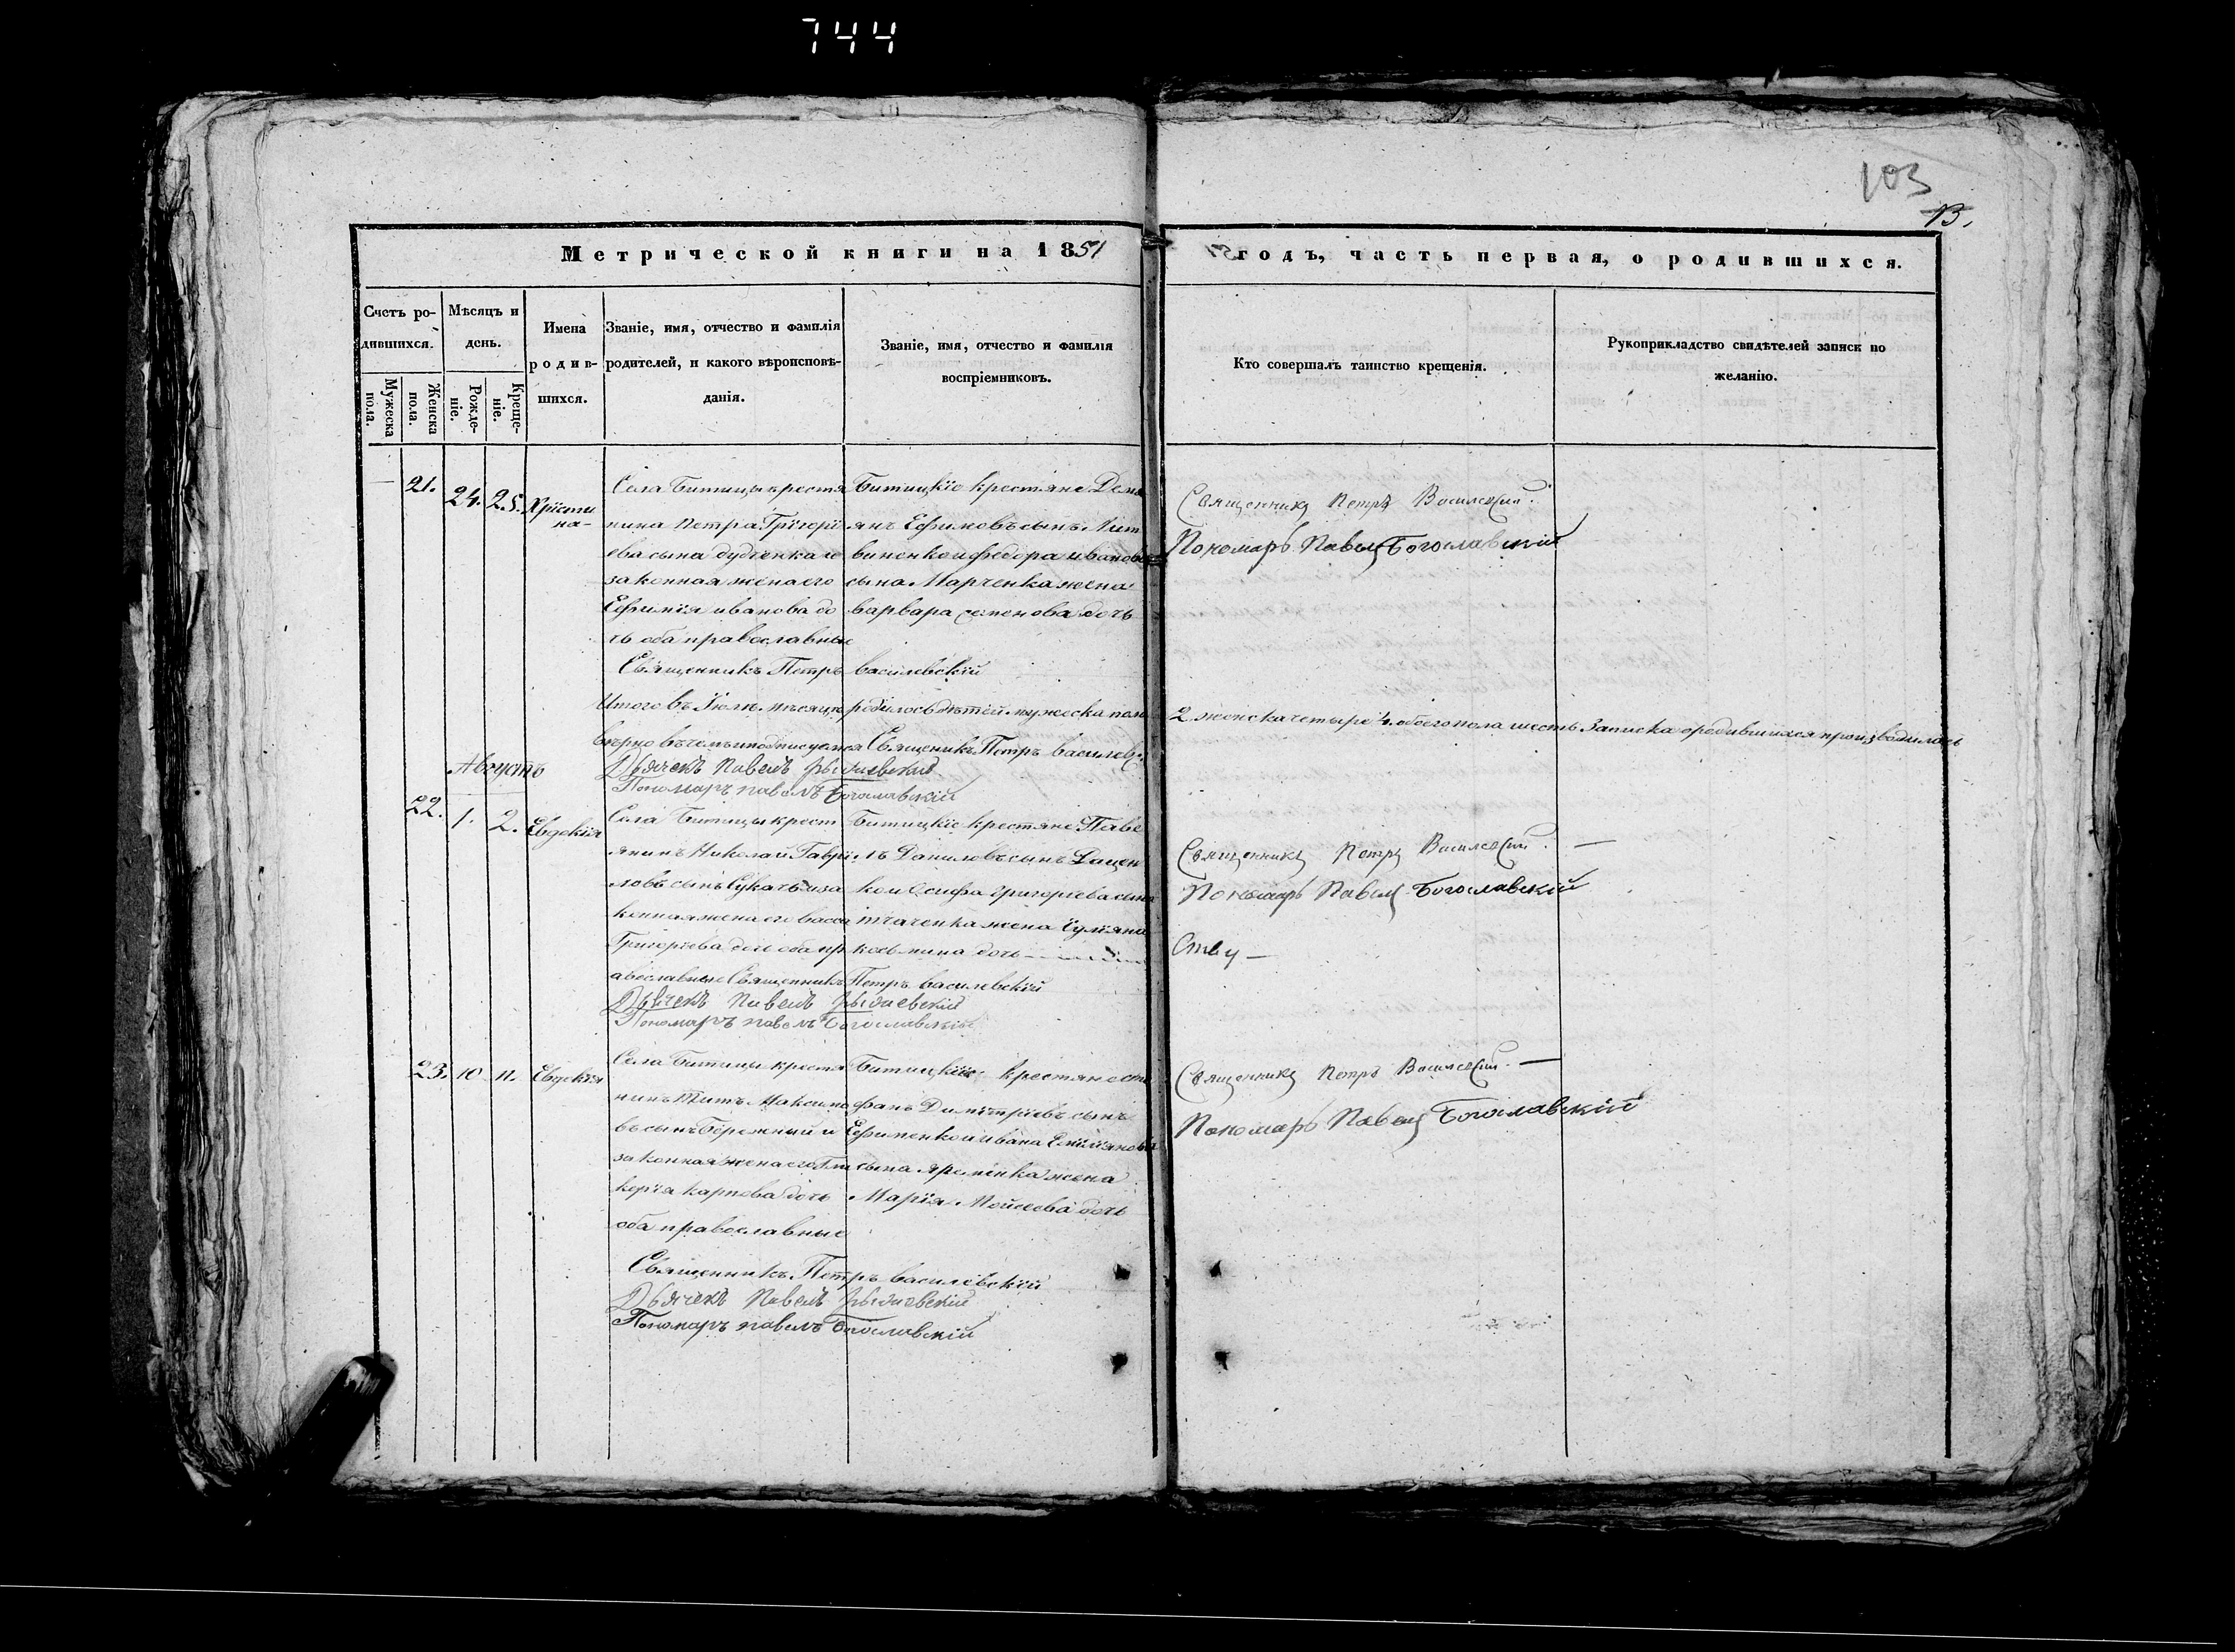 744
103
13.
Метрической книги на 1851
годъ, часть первая, о родившихся.
Счетъ родившихся.
Мужеска пола.
Женска пола.
Мѣсяцъ и день.
Рожденіе.
Крещеніе.
Имена родившихся.
Званіе, имя, отчество и фамилія
родителей, и какого вѣроисповѣданія.
Званіе, имя, отчество и фамилія
воспріемниковъ.
Кто совершалъ таинство крещенія.
Рукоприкладство свидѣтелей записи по
желанію.
21. 24. 25. Христи
на
Села Битицы крестя
нина Петра Григорі
ева сына дудченка и
законная жена его
Ефимія иванова до
чь оба православные
Священникъ Петръ василевскій
Битицкіе крестяне Деми
янъ Ефимовъ сынъ Лит
виненко и федора иванова
сына Марченка жена
варвара семенова дочь
Священникъ Петръ Василевскій
Пономарь Павелъ Богославскій
Итого въ Іюлѣ мѣсяцѣ родилось дѣтей мужеска пола 2. женска четыре 4. обоего пола шесть Записка о родившихся производилась
вѣрно въ чемъ и подписуемся Священикъ Петръ василевс
Дьячекъ Павелъ
Пономарь павелъ Богославскій
Августъ
22. 1. 2. Евдокія
Села Битицы крест
янинъ Николай Гаврі
ловъ сынъ Сукачь и за
конная жена его васса
Григорьева дочь оба пр
авославные Священникъ Петръ василевскій
Дьячекъ Павелъ
Пономарь павелъ Богославскій
Битицкіе крестяне Паве
лъ Даниловъ сынъ Дацен
ко и Осифа Григорьева сына
ткаченка жена Іуліяна
косьмина дочь
Священникъ Петръ Василевскій
Пономарь Павелъ Богославскій
Ству
23. 10 11. Евдокія
Села Битицы крестя
нинъ Титъ Максимо
въ сынъ Бережный и
законная жена его Гли
керія карпова дочь
оба православные
Священникъ Петръ василевскій
Дьячекъ Павелъ
Пономарь павелъ Богославскій
Битицкіе крестяне сте
фанъ Димитріевъ сынъ
Ефименко и ивана Емиліянова
сына яременка жена
Марія Моисеева дочь
Священникъ Петръ Василевскій
Пономарь Павелъ Богославскій